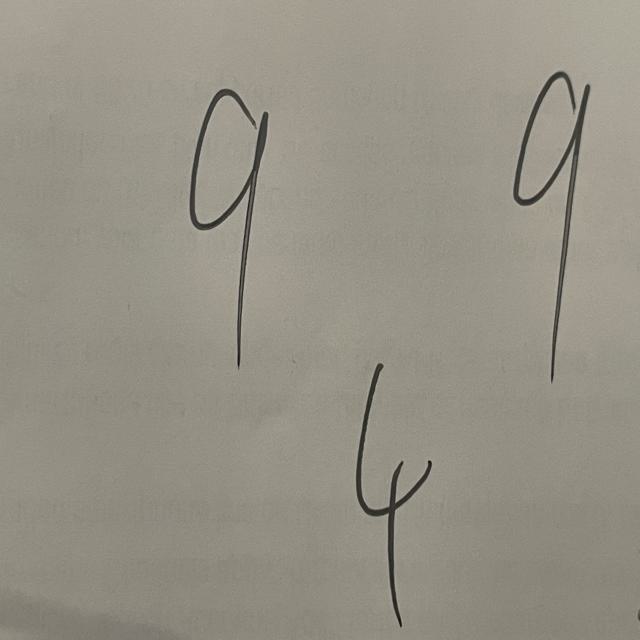 9 9
4